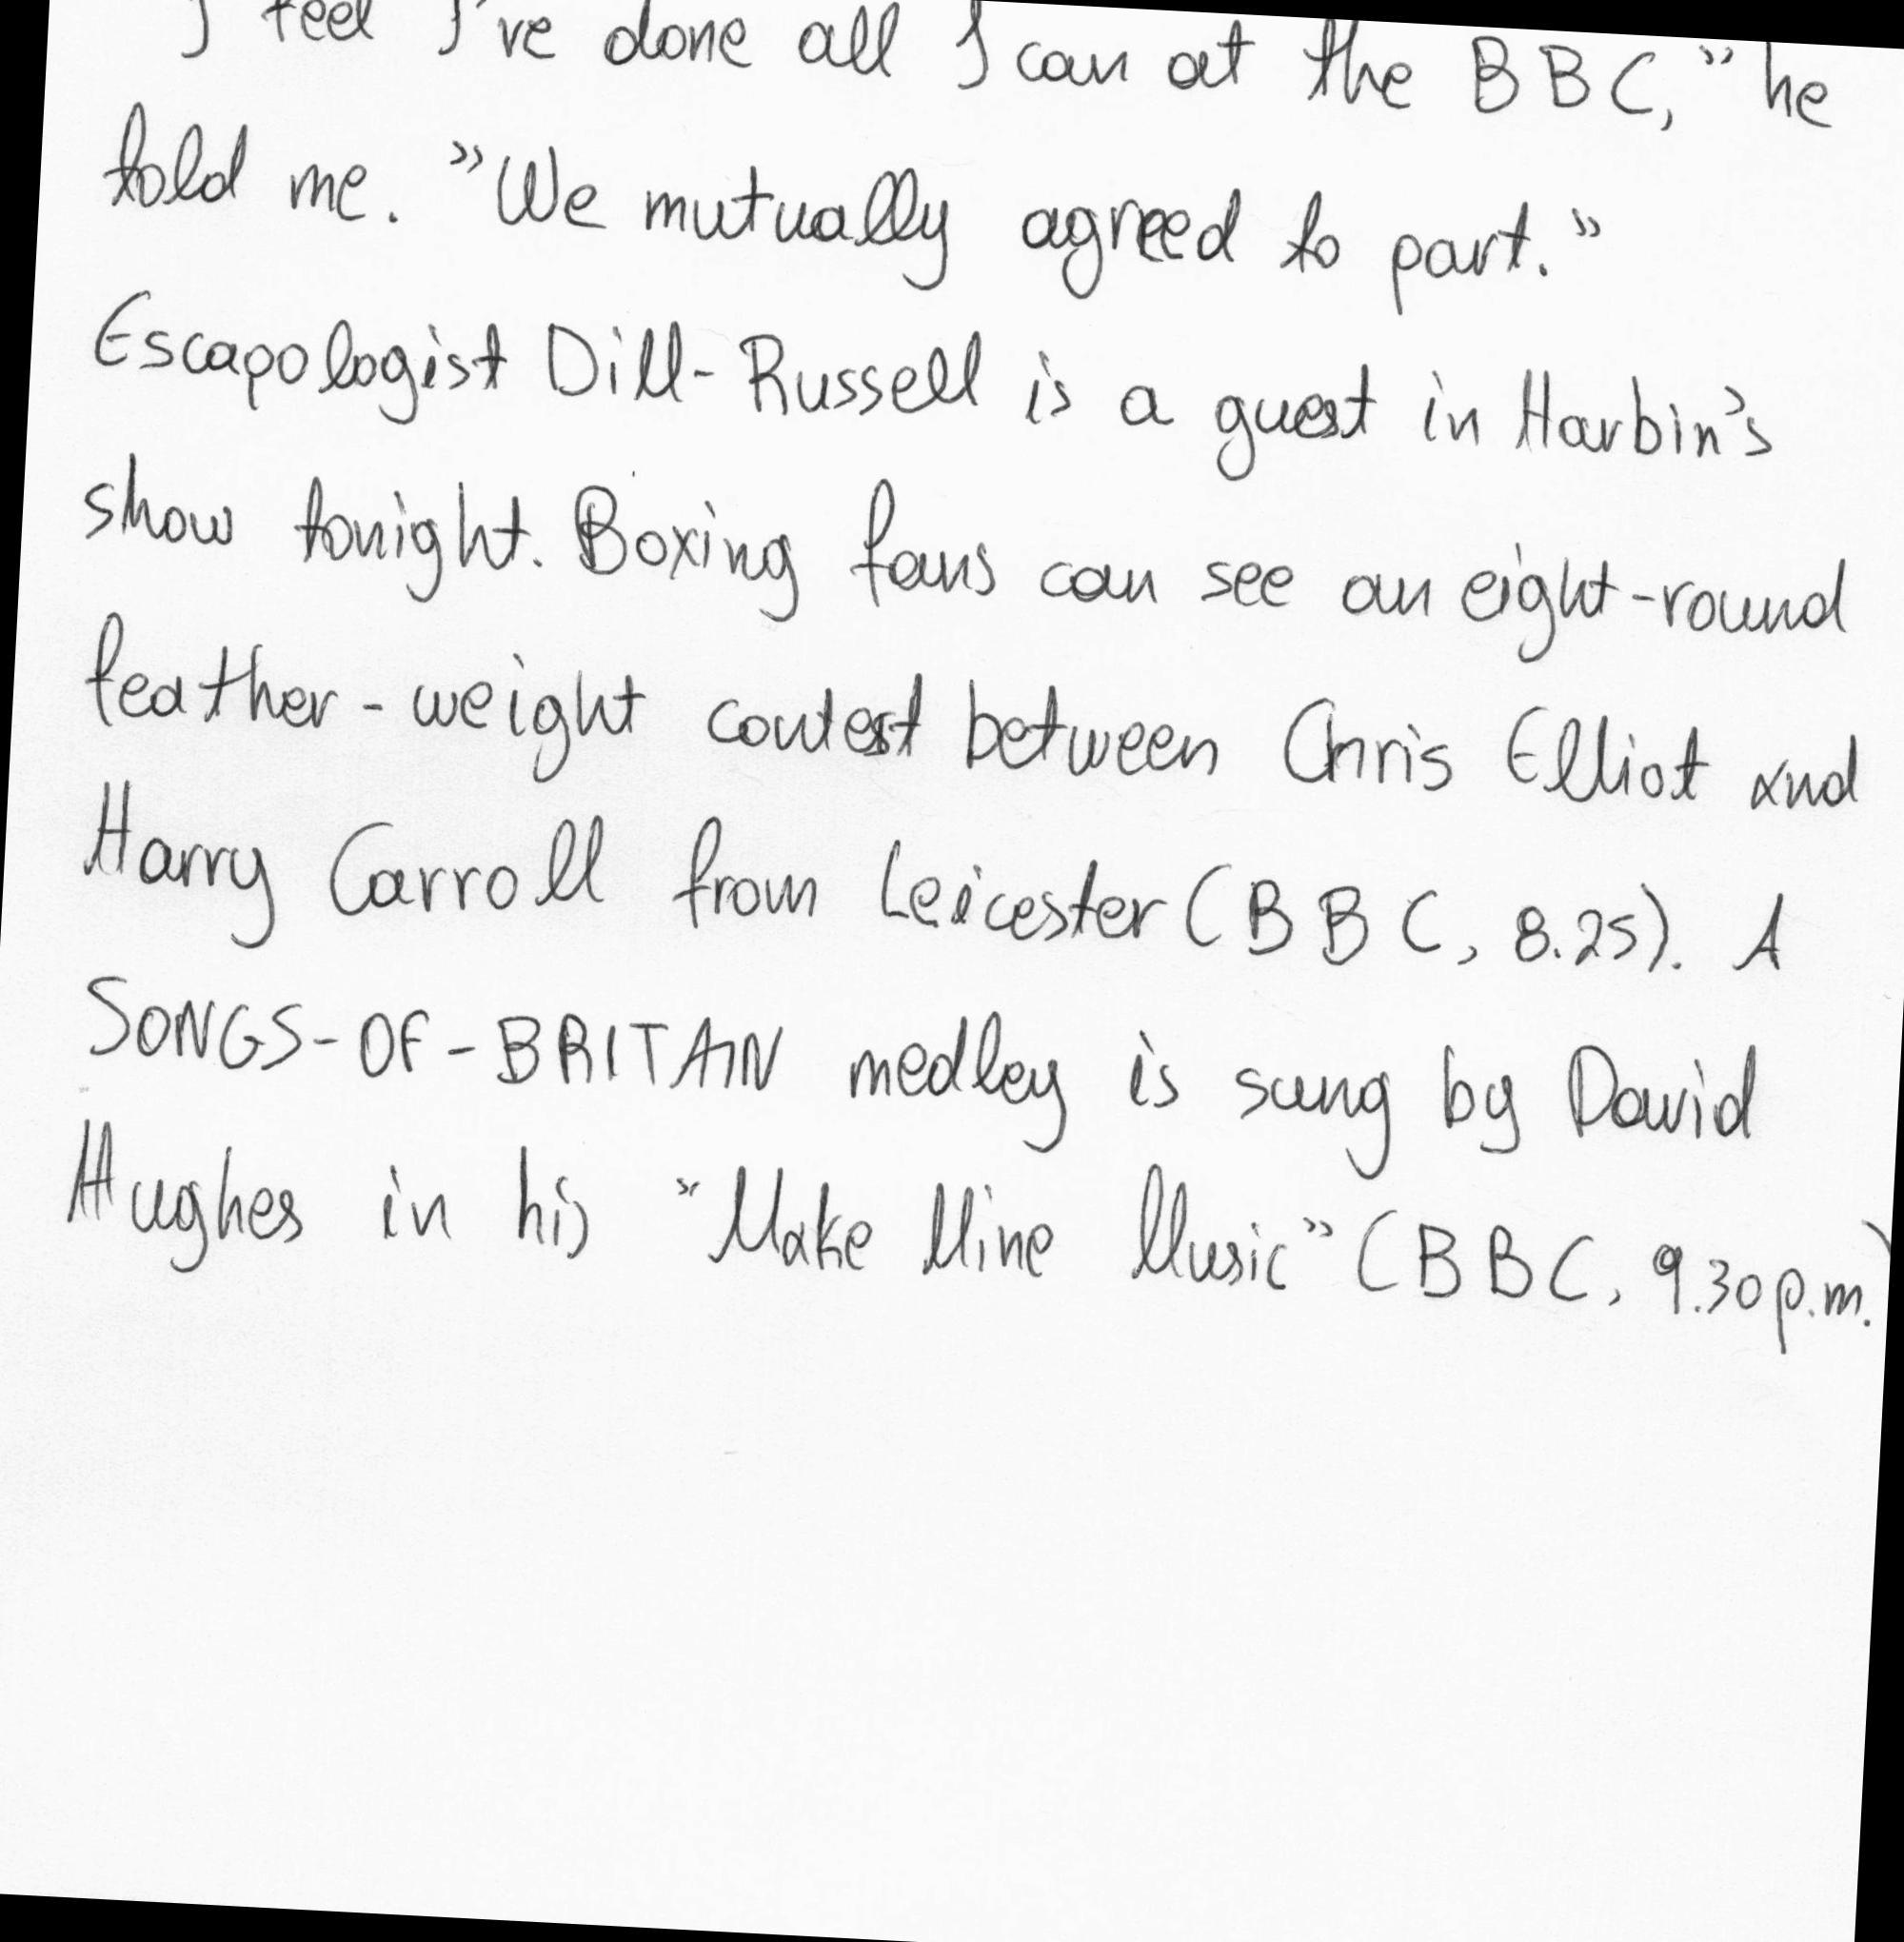 I feel I've done all I can at the B B C," he
told me. "We mutually agreed to part."
Escapologist Dill-Russell is a guest in Harbin's
show tonight. Boxing fans can see an eight-round
feather-weight contest between Chris Elliot and
Harry Carroll from Leicester (B B C, 8.25). A
SONGS-OF-BRITAIN medley is sung by David
Hughes in his "Make Mine Music" (B B C, 9.30 p.m.)